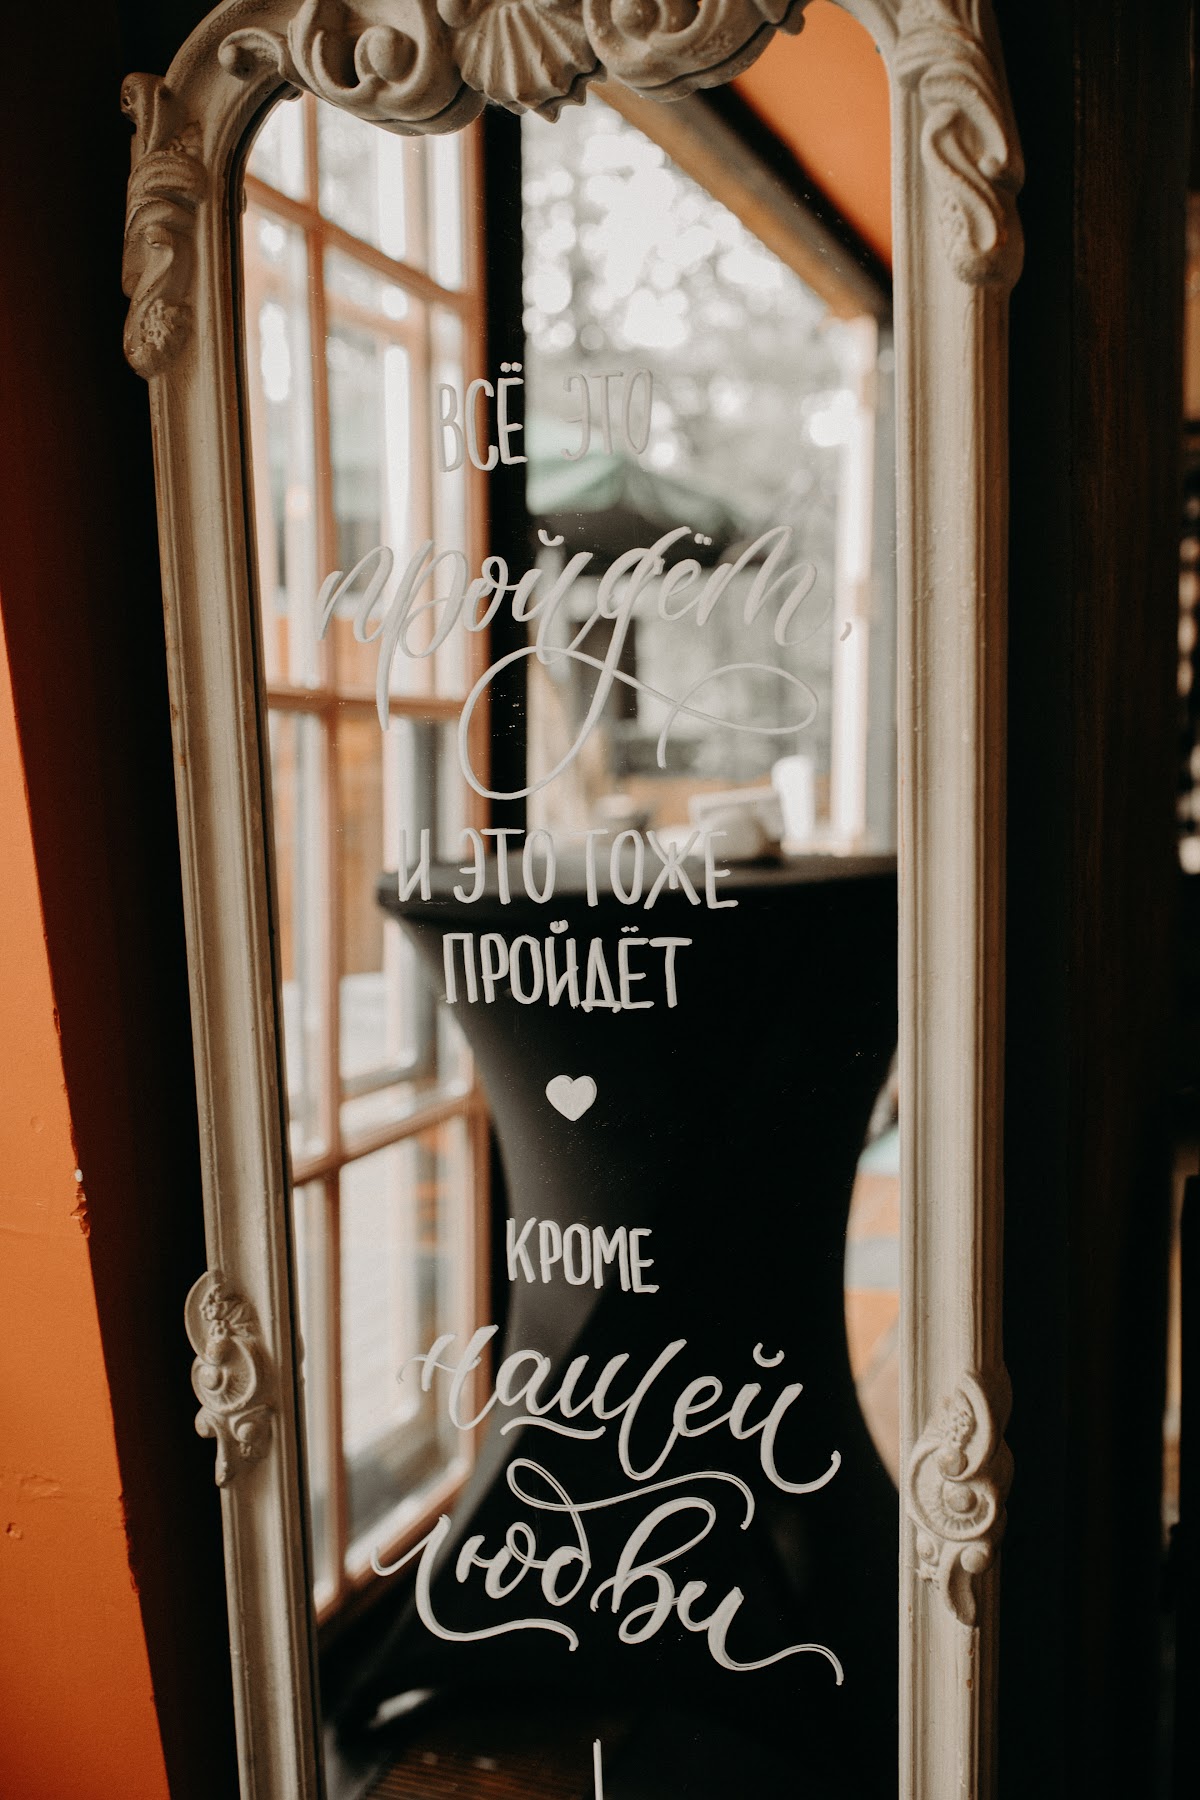 ВСЁ ЭТО
пройдёт,
И ЭТО ТОЖЕ
ПРОЙДЁТ
КРОМЕ
нашей
любви